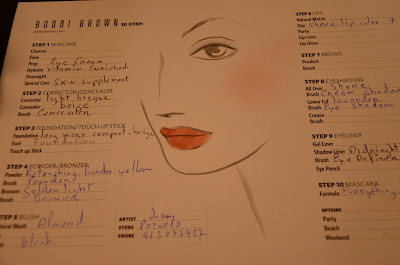 BOBBI BROWN 10 STEP
STEP 1 SKINCARE
Cleanse
Tone
Prep Eye Cream
Hydrate Vitamin Enriched
Overnight
Special Care Skin Supplement
STEP 2 CORRECTOR/CONCEALER
Corrector light bisque
Concealer beige
Brush Concealer
STEP 3 FOUNDATION/TOUCH UP STICK
Foundation long wear compact-beige
Tool Foundation
Touch up Stick
STEP 4 POWDER/BRONZER
Powder Retouching Powder yellow
Brush Powder
Bronzer Golden light
Brush Bronzer
STEP 5 BLUSH
Natural Blush Almond
blush
ARTIST
STORE
PHONE 913077957
STEP 6 LIPS
Natural Match
Day Sheer lip color 7
Party
Lip Liner
Lip Gloss
STEP 7 BROWS
Product
Brush
STEP 8 EYESHADOW
All Over Stone
Brush Cream Shadow
Lower Lid lavander
Brush Eye Shadow
STEP 9 EYELINER
Gel Liner
Shadow Liner Midnight
Brush Eye Definer
Eye Pencil
STEP 10 MASCARA
Formula everything
OPTIONS
Party
Beach
Weekend